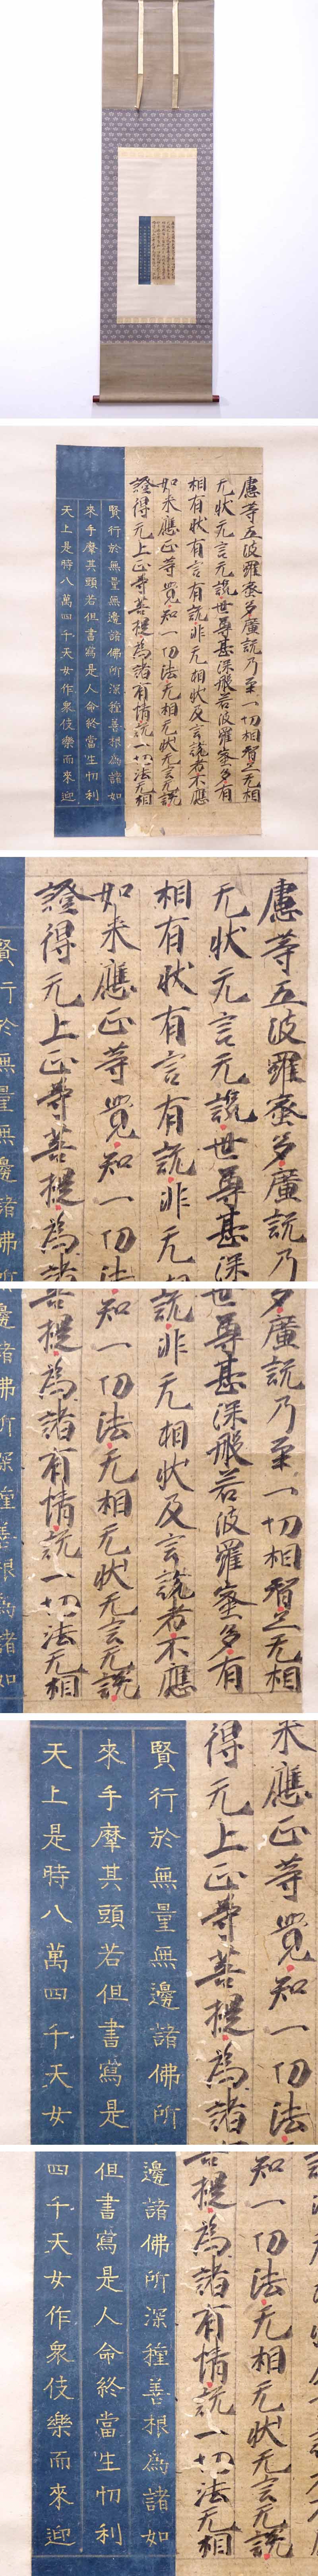 慮等五波羅蜜多廣説乃至一切相智之无相
无状无言无説世尊甚深般若波羅蜜多有
相有状有言有説非无相状及言説者不應
如来應正等覺知一切法无相无状无言无説
證得无上正等菩提為諸有情説一切法无相
賢行於無量無邊諸佛所深種善根為諸如
來手摩其頭若但書寫是人命終當生忉利
天上是時八萬四千天女作衆伎樂而來迎